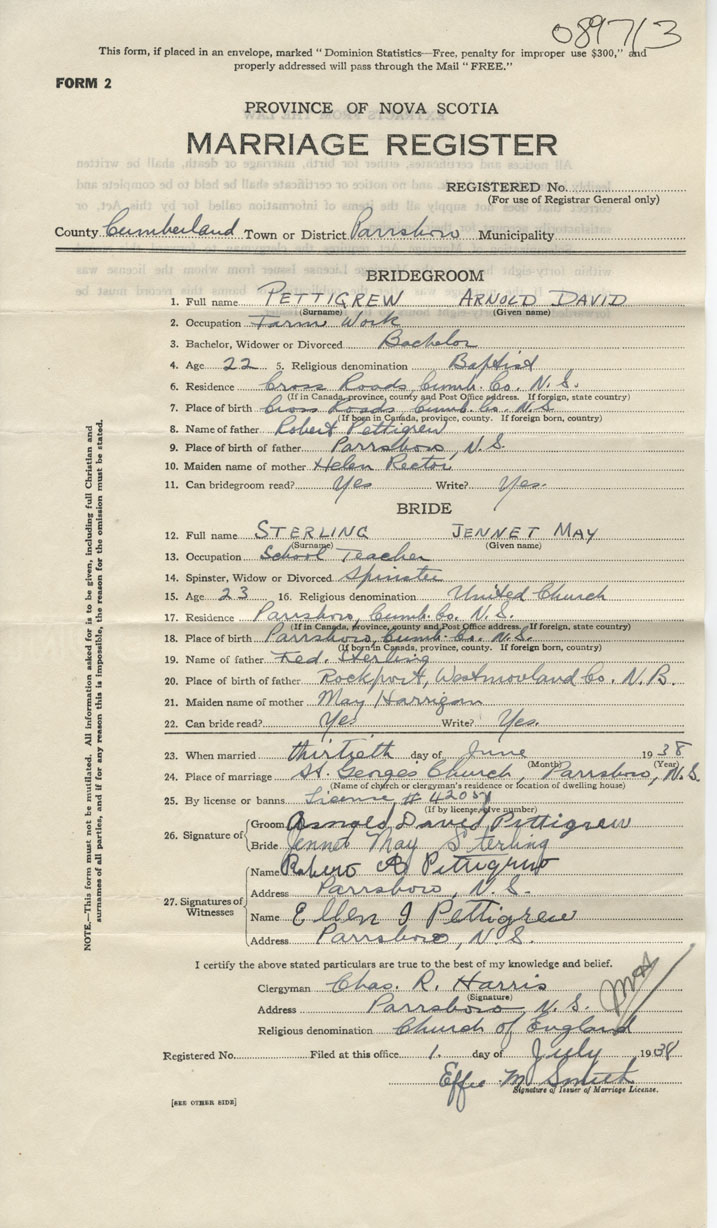 089713
This form, if placed in an envelope, marked "Dominion Statistics—Free, penalty for improper use $300," and
properly addressed will pass through the Mail "FREE."
FORM 2
PROVINCE OF NOVA SCOTIA
MARRIAGE REGISTER
REGISTERED No.
(For use of Registrar General only)
County Cumberland Town or District Parrsboro Municipality
BRIDEGROOM
1. Full name PETTIGREW ARNOLD DAVID
(Surname) (Given name)
2. Occupation Farm Work
3. Bachelor, Widower or Divorced Bachelor
4. Age 22 5. Religious denomination Baptist
6. Residence Cross Roads, Cumb. Co. N.S.
(If in Canada, province, county and Post Office address. If foreign, state country)
7. Place of birth Cross Roads Cumb. Co. N.S.
(If born in Canada, province, county. If foreign born, country)
8. Name of father Robert Pettigrew
9. Place of birth of father Parrsboro, N.S.
10. Maiden name of mother Helen Rector
11. Can bridegroom read? Yes Write? Yes.
BRIDE
12. Full name STERLING JENNET MAY
(Surname) (Given name)
13. Occupation School Teacher
14. Spinster, Widow or Divorced Spinster
15. Age 23 16. Religious denomination United Church
17. Residence Parrsboro, Cumb. Co. N.S.
(If in Canada, province, county and Post Office address. If foreign, state country)
18. Place of birth Parrsboro, Cumb. Co. N.S.
(If born in Canada, province, county. If foreign born, country)
19. Name of father Fed. Sterling
20. Place of birth of father Rockport, Westmorland Co. N.B.
21. Maiden name of mother May Harrigan
22. Can bride read? Yes Write? Yes.
23. When married thirtieth day of June 1938
(Month) (Year)
24. Place of marriage St. Georges Church, Parrsboro, N.S.
(Name of church or clergyman's residence or location of dwelling house)
25. By license or banns License #
(If by license, give number)
26. Signature of Groom Arnold David Pettigrew
Bride Jennet May Sterling
27. Signatures of Witnesses Name Pettigrew
Address Parrsboro, N.S.
Name Ellen J Pettigrew
Address Parrsboro, N.S.
I certify the above stated particulars are true to the best of my knowledge and belief.
Clergyman Chas. R. Harris
(Signature)
Address Parrsboro N.S.
Religious denomination Church of England
Registered No. Filed at this office 1. day of July 1938
Effie M Smith
Signature of Issuer of Marriage License.
[SEE OTHER SIDE]
NOTE.—This form must not be mutilated. All information asked for is to be given, including full Christian and
surnames of all parties, and if for any reason this is impossible, the reason for the omission must be stated.